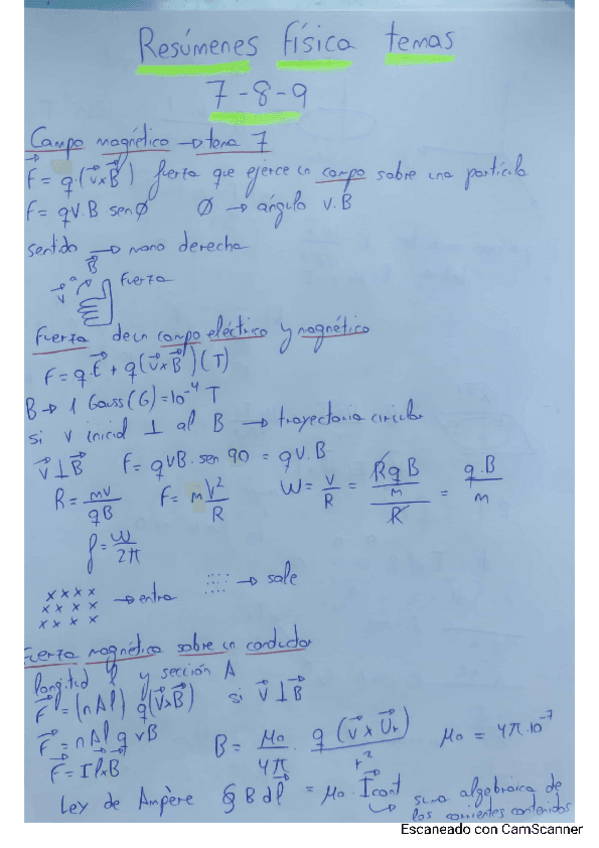 Resúmenes física temas
7-8-9
Campo magnético → tema 7
F⃗ = q(v⃗xB⃗) fuerza que ejerce un campo sobre una partícula
F = qV.B senØ Ø → ángulo v.B
sentido → mano derecha
B⃗
v⃗ fuerza
Fuerza de un campo eléctrico y magnético
F = q.E⃗ + q(v⃗xB⃗)(T)
B → 1 Gauss(G) = 10⁻⁴ T
si v inicial ⊥ al B → trayectoria circular
v⃗⊥B⃗ F = qvB.sen 90 = qV.B
R = mv/qB F = mV²/R W = V/R = (RqB/m)/R = q.B/m
f = W/2π
xxxx
xxxx → entra :::: → sale
xxxx
Fuerza magnética sobre un conductor
longitud l y sección A
F⃗ = (nAl) q(v⃗xB⃗) si v⃗⊥B⃗
F⃗ = nAl q vB B = μ₀/4π . q(v⃗ x U⃗r)/r² μ₀ = 4π.10⁻⁷
F⃗ = I l⃗xB⃗
Ley de Ampère ∮ B dl⃗ = μ₀.I⃗cont → suma algebraica de
las corrientes contenidas
Escaneado con CamScanner